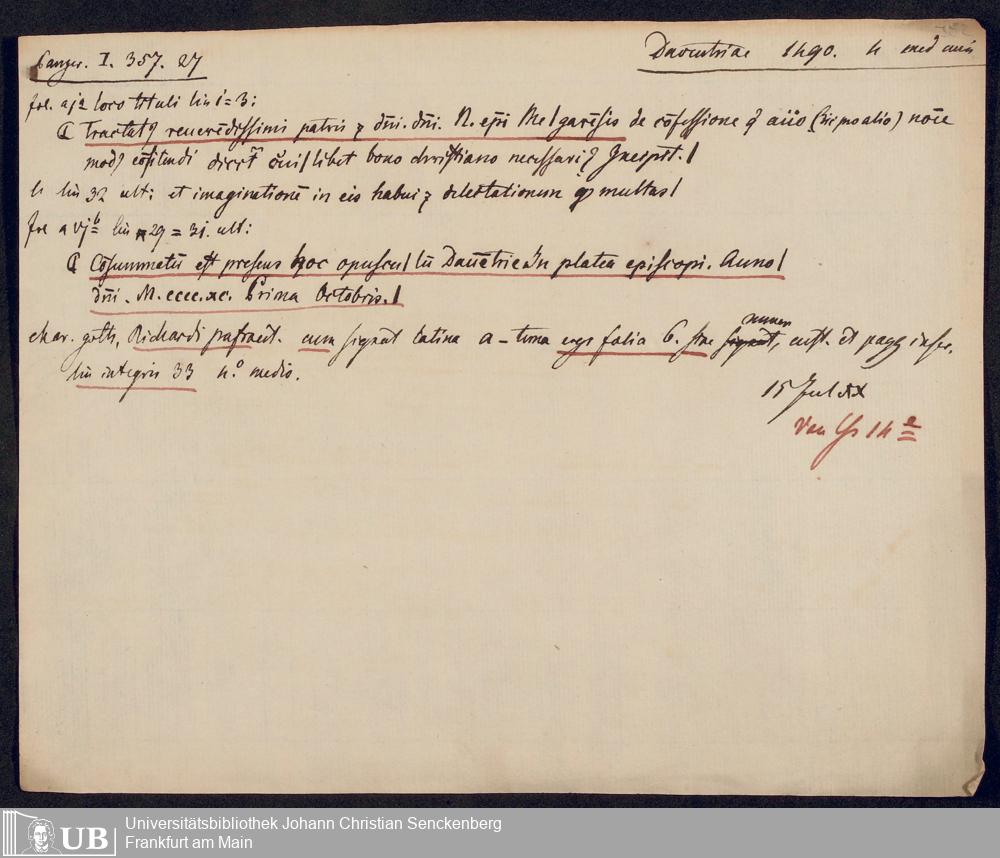 Panzer. I. 357. 27
Dauentriae 1490. 4 med min
fol. aj a loco tituli lin 1=3:
Tractatꝰ reuerēdissimi patris ⁊ dn̄i. dn̄i. N. ep̄i Me/garēsis de cōfessione q̄ aīio (Sīri pro alio) noīe
modꝰ cōfitendi dicit̄ cui/libet bono christiano necessariꝰ Incipit./
b lin 32 ult: et imaginatione in eis habui ⁊ delectationum qꝫ multas/
fol a vj b lin 29 = 31. ult:
Cōsummatū est presens hoc opuscu/lū Dauētrie In platea episcopi. Anno/
dn̄i. M.cccc.xc. Prima Octobris./
char. goth, Richardi pafraet. cum signat latina a – terna ergo folia 6. sine numer, cust. et pagg inscr.
lin integris 33 4.o medio.
15 Jul
Van Ys 14 a
Universitätsbibliothek Johann Christian Senckenberg
Frankfurt am Main
UB